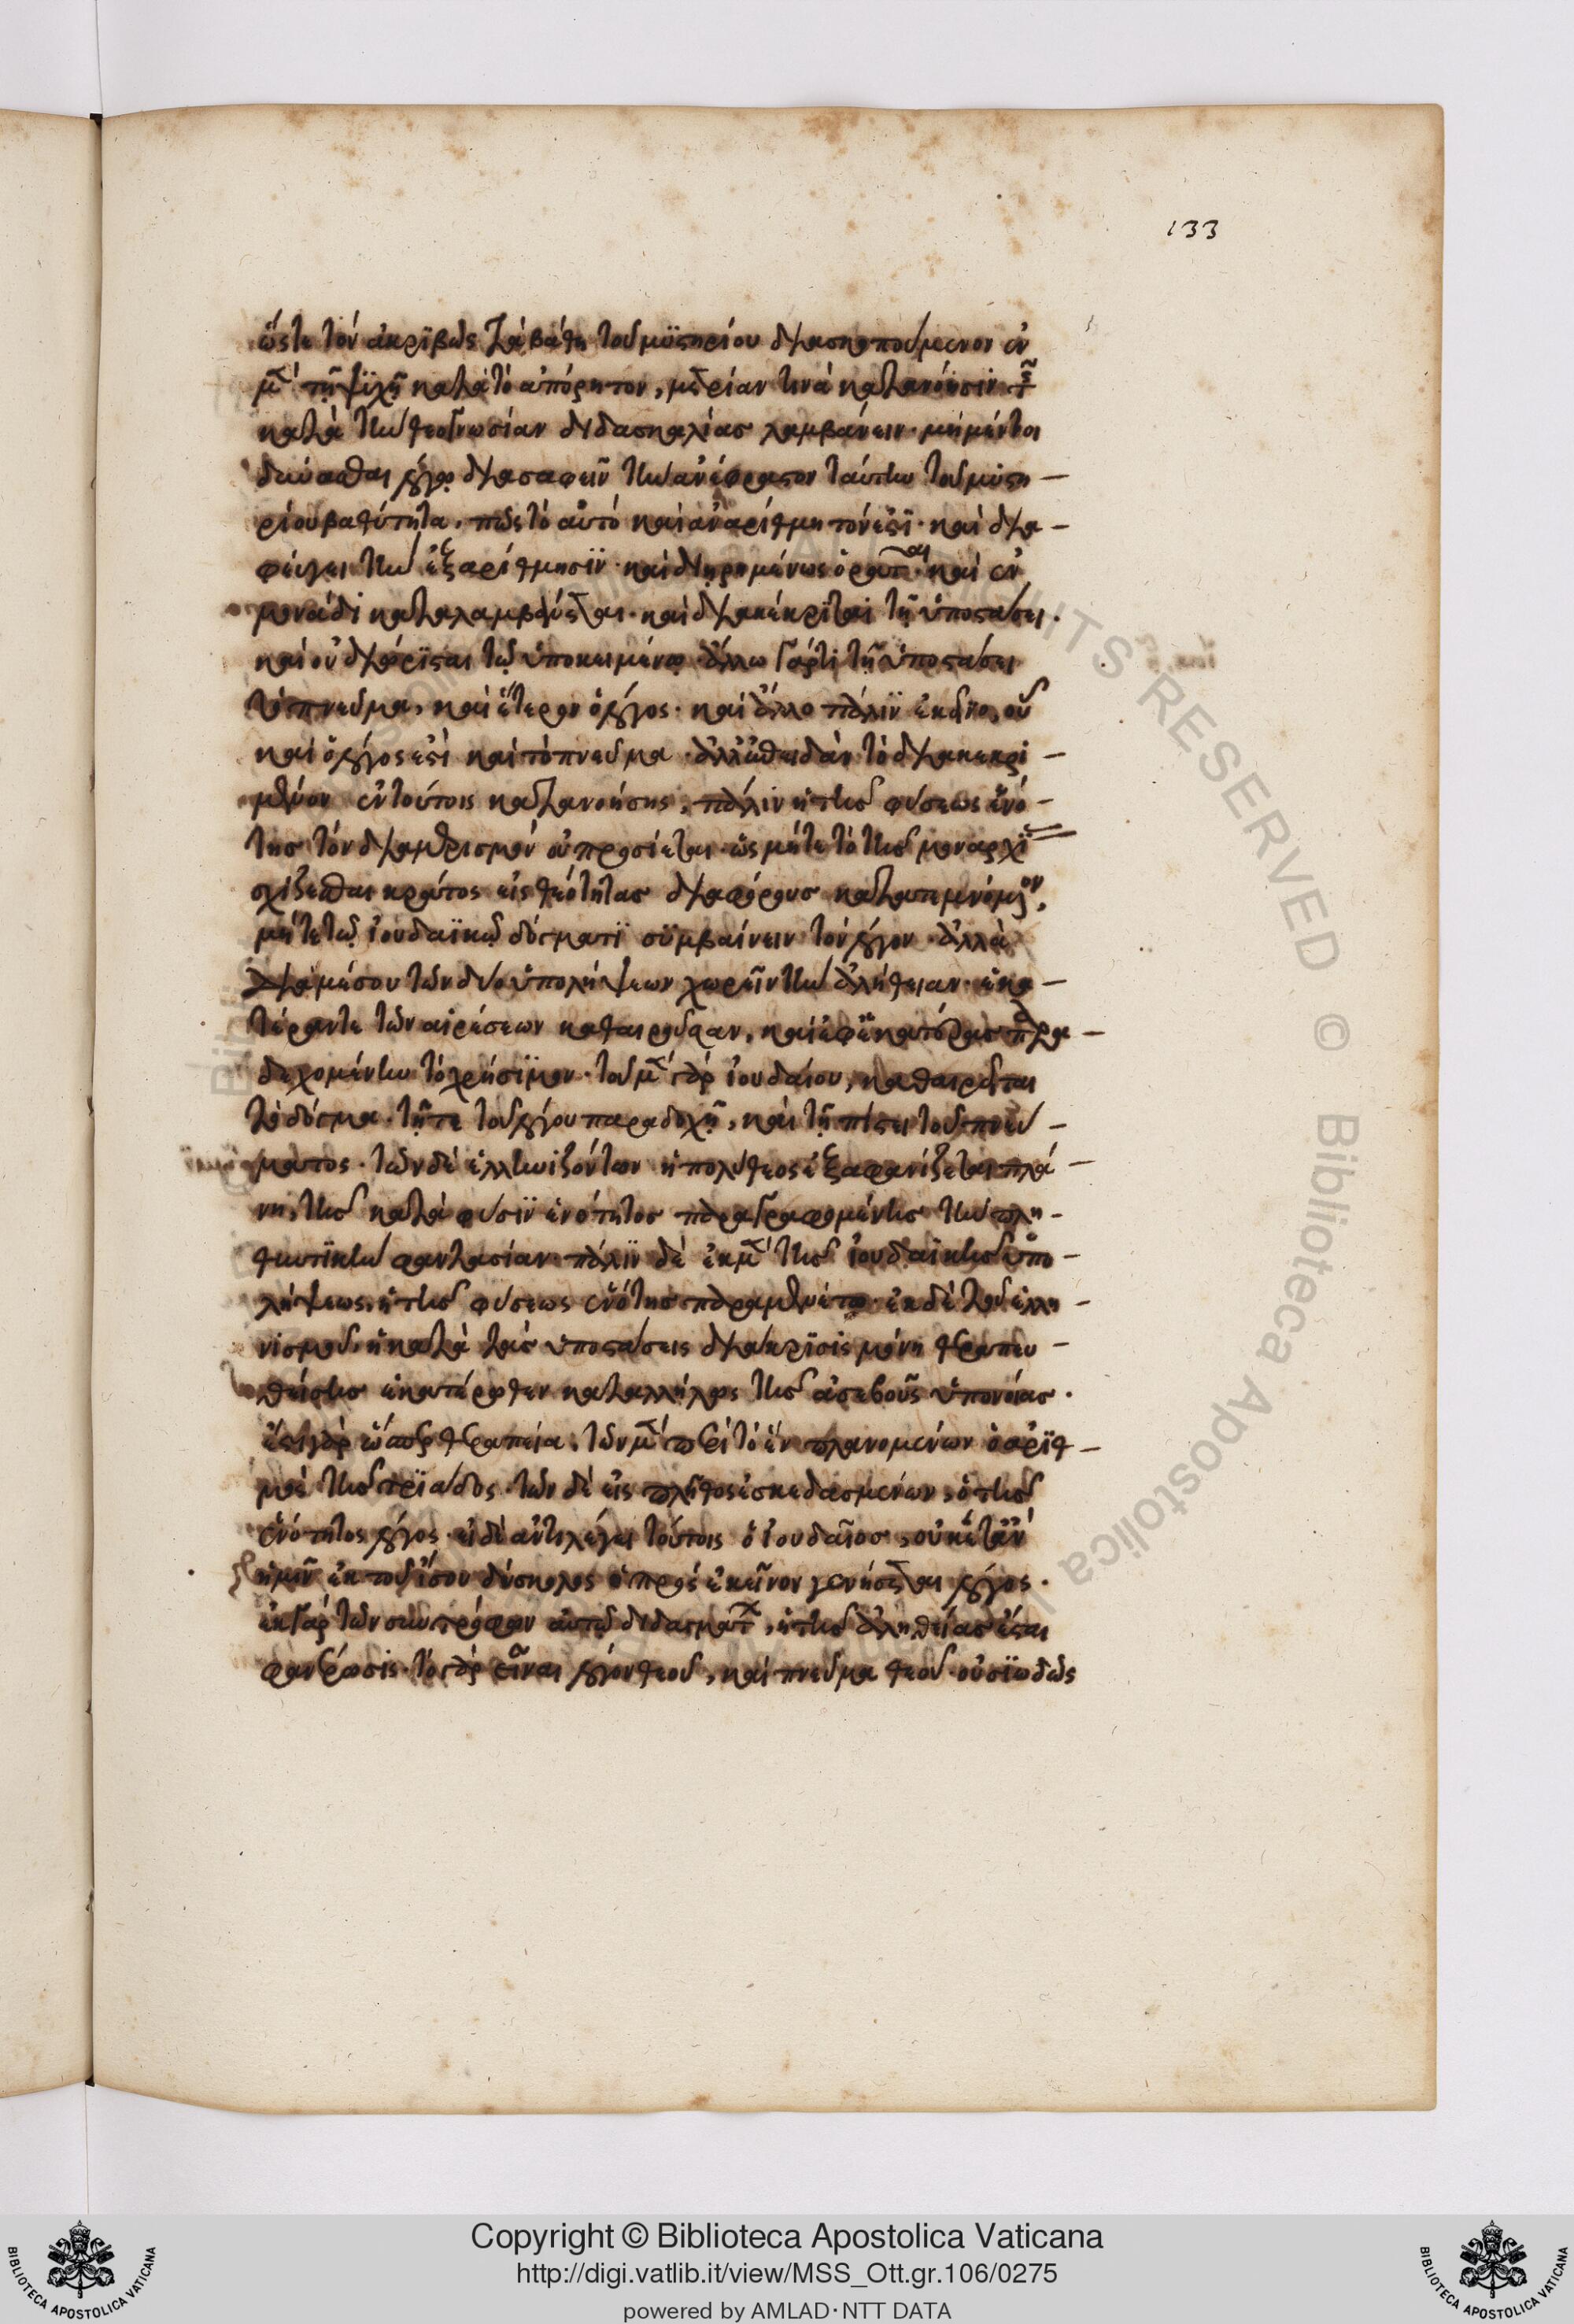 133
ὥστε τὸν ἀκριβῶς τὰ βάθη τοῦ μυστηρίου διασκοπούμενον ἐν
μὲν τῇ ψυχῇ κατὰ τὸ ἀπόρητον, μετρίαν τινὰ κατανόησιν τῆς
κατὰ τὴν θεογνωσίαν διδασκαλίας λαμβάνειν· μὴ μέντοι
δύνασθαι λόγῳ διασαφεῖν τὴν ἀνέφραστον ταύτην τοῦ μυστη–
ρίου βαθύτητα, πῶς τὸ αὐτὸ καὶ ἀναρίθμητόν ἐστι· καὶ δια–
φεύγει τὴν ἐξαρίθμησιν· καὶ διῃρημένως ὁρᾶται· καὶ ἐν
μονάδι καταλαμβάνεται· καὶ διακέκριται τῇ ὑποστάσει·
καὶ οὐ διώρισται τῷ ὑποκειμένῳ· ἄλλο γάρ τι τῇ ὑποστάσει
τὸ πνεῦμα, καὶ ἕτερον ὁ λόγος· καὶ ἄλλο πάλιν ἐκεῖνο, οὗ
καὶ ὁ λόγος ἐστὶ καὶ τὸ πνεῦμα· ἀλλ' ἐπειδὰν τὸ διακεκρι–
μένον ἐν τούτοις κατανοήσῃς, πάλιν ἡ τῆς φύσεως ἑνό–
της τὸν διαμερισμὸν οὐ προσίεται· ὡς μήτε τὸ τῆς μοναρχί
σχίζεσθαι κράτος εἰς θεότητας διαφόρους κατατεμνόμενον,
μήτε τῷ ἰουδαϊκῷ δόγματι συμβαίνειν τὸν λόγον· ἀλλὰ
διὰ μέσου τῶν δύο ὑπολήψεων χωρεῖν τὴν ἀλήθειαν· ἑκα–
τέραν τε τῶν αἱρέσεων καθαιροῦσαν, καὶ ἀφ' ἑκατέρας παρα–
δεχομένην τὸ χρήσιμον· τοῦ μὲν γὰρ ἰουδαίου, καθαιρεῖται
τὸ δόγμα· τῇ τε τοῦ λόγου παραδοχῇ, καὶ τῇ πίστει τοῦ πνεύ–
ματος· τῶν δὲ ἑλληνιζόντων ἡ πολύθεος ἐξαφανίζεται πλά–
νη, τῆς κατὰ φύσιν ἑνότητος παραγραφομένης τὴν πλη–
θυντικὴν φαντασίαν· πάλιν δὲ ἐκ μὲν τῆς ἰουδαϊκῆς ὑπο–
λήψεως, ἡ τῆς φύσεως ἑνότης παραμενέτω· ἐκ δὲ τοῦ ἑλλη–
νισμοῦ, ἡ κατὰ τὰς ὑποστάσεις διάκρισις μόνη θεραπευ–
θείσης ἑκατέρωθεν καταλλήλως τῆς ἀσεβοῦς ὑπονοίας·
ἔστι γὰρ ὥσπερ θεραπεία, τῶν μὲν περὶ τὸ ἓν πλανομένων ὁ ἀριθ–
μὸς τῆς τριάδος· τῶν δὲ εἰς πλῆθος ἐσκεδασμένων, ὁ τῆς
ἑνότητος λόγος· εἰ δὲ ἀντιλέγει τούτοις ὁ ἰουδαῖος, οὐκέτ' ἂν
ἡμῖν ἐκ τοῦ ἴσου δύσκολος ὁ πρὸς ἐκεῖνον γενήσεται λόγος·
ἐκ γὰρ τῶν συντρόφων αὐτῷ διδαγμάτων, ἡ τῆς ἀληθείας ἔσται
φανέρωσις· τὸ γὰρ εἶναι λόγον θεοῦ, καὶ πνεῦμα θεοῦ· οὐσιωδῶς
Copyright © Biblioteca Apostolica Vaticana
http://digi.vatlib.it/view/MSS_Ott.gr.106/0275
powered by AMLAD·NTT DATA